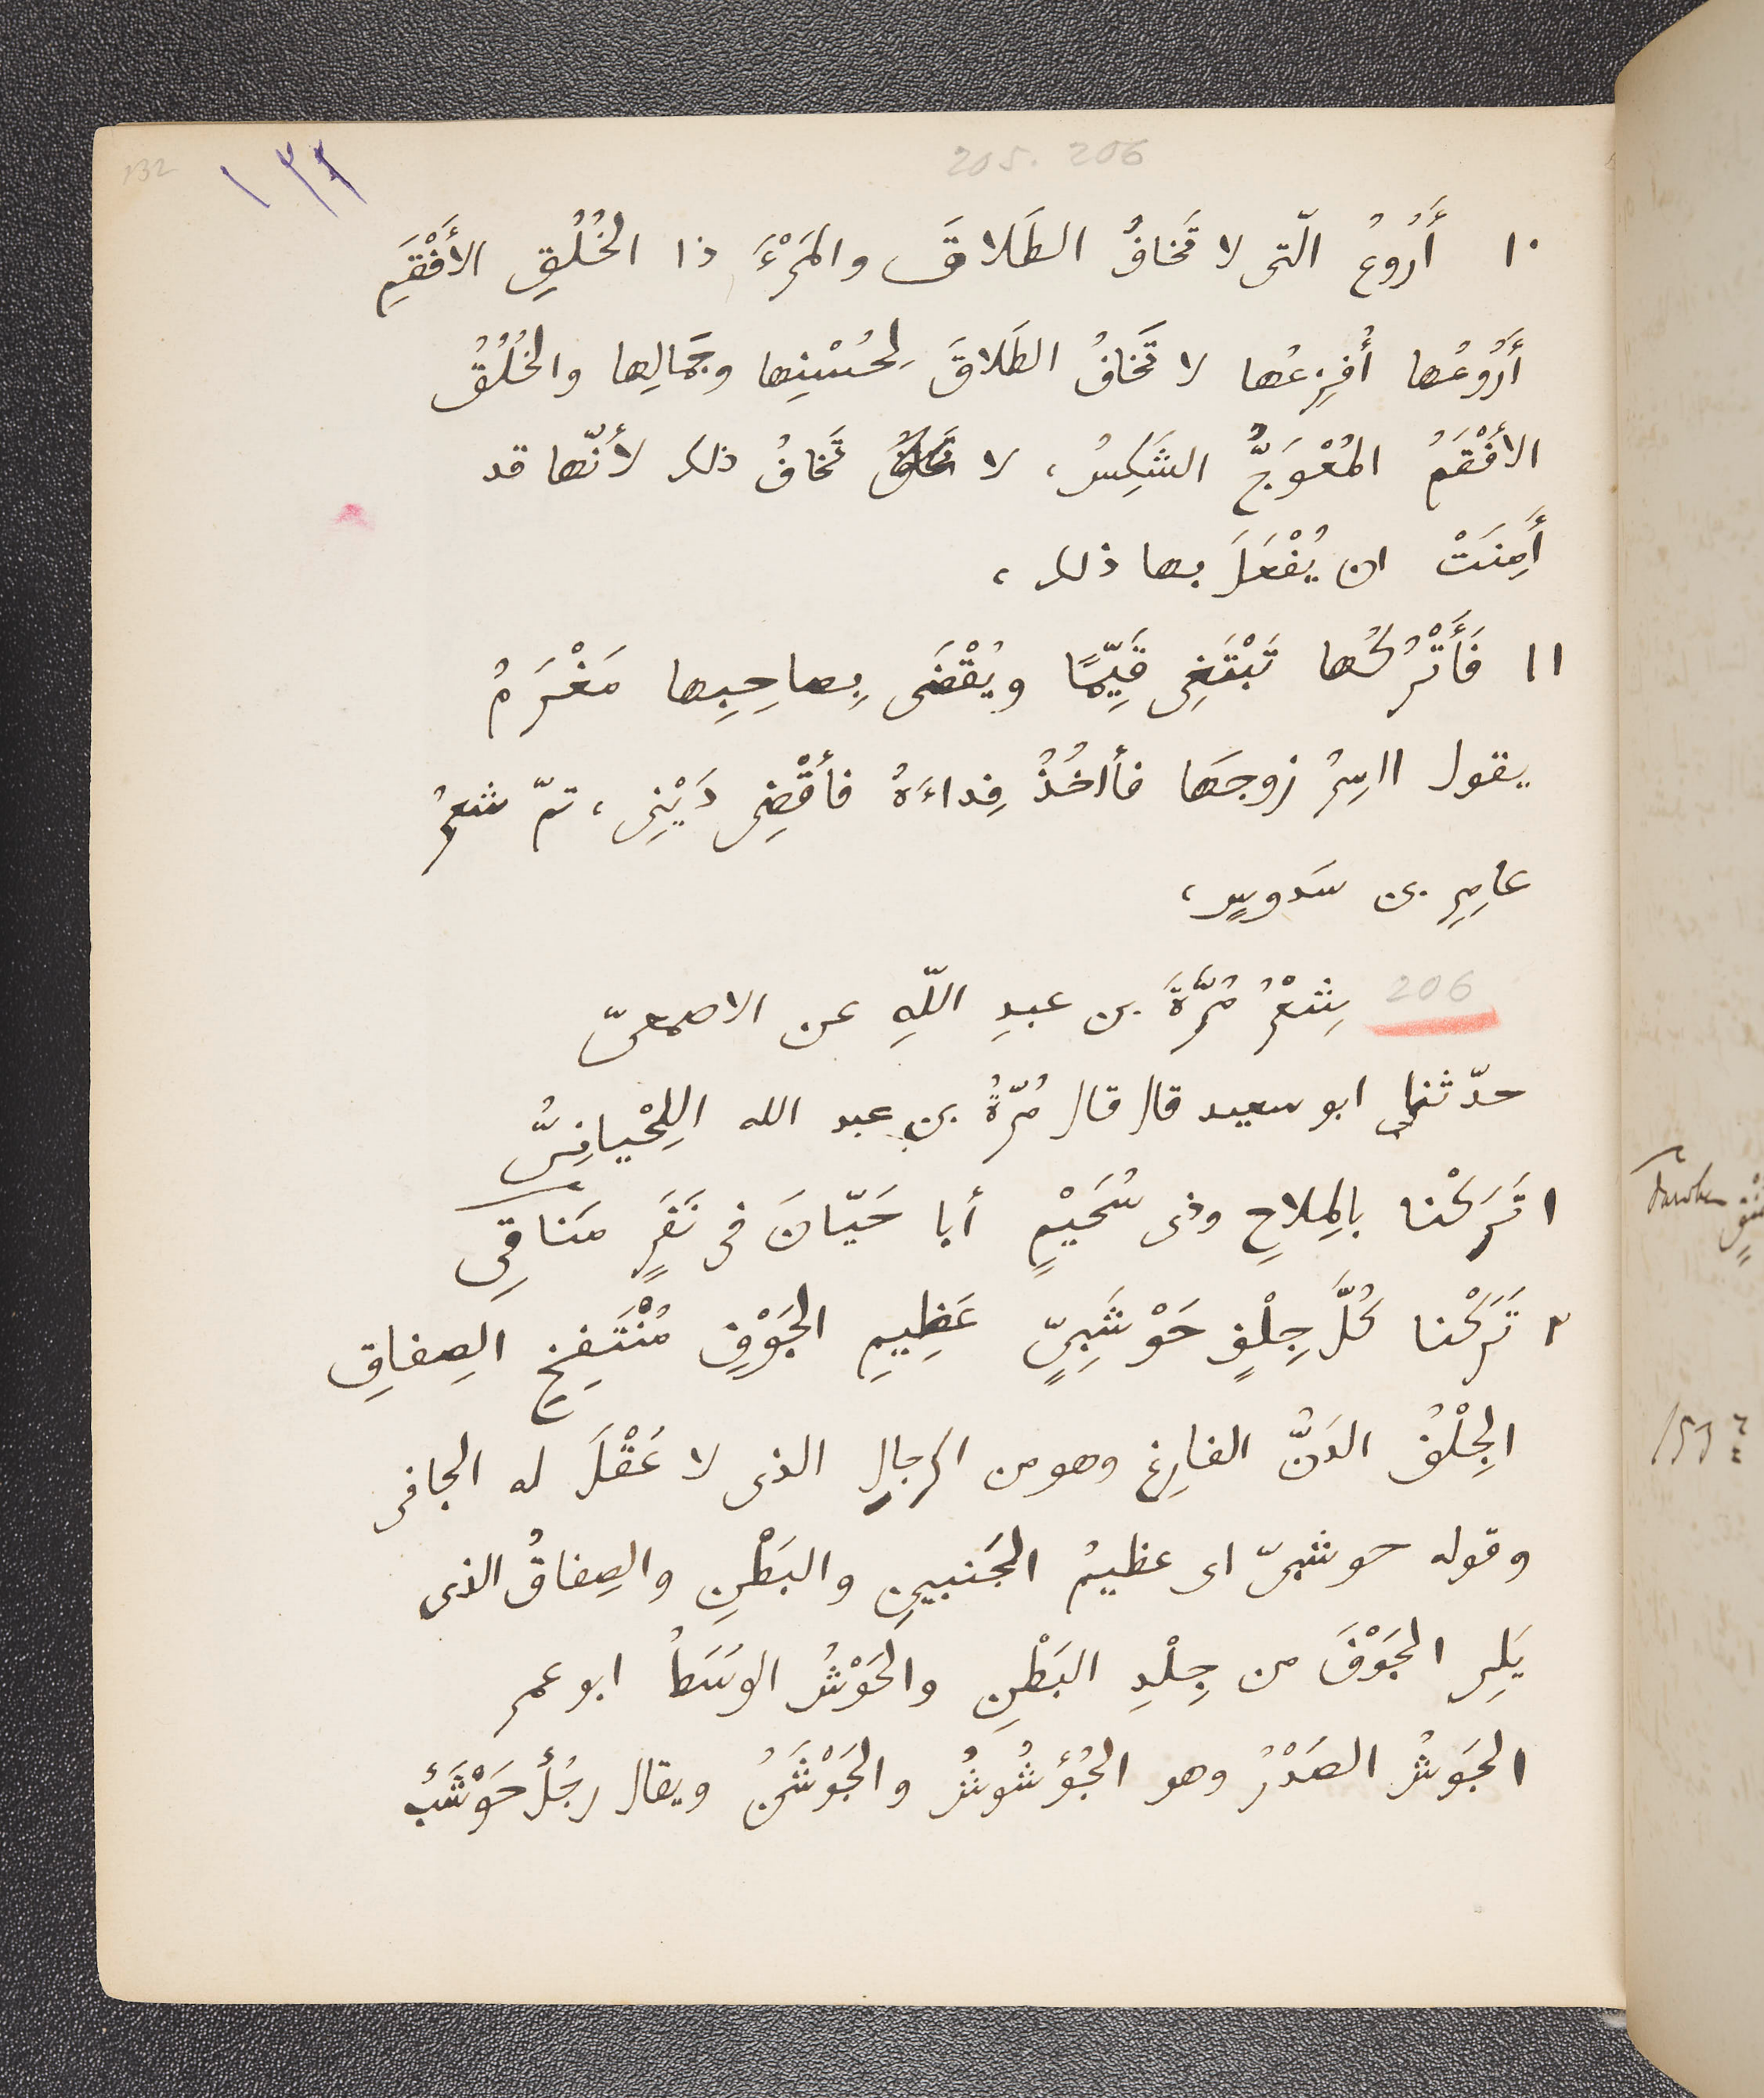 132
١٣٢
205. 206
١٠ أَرُوعُ الّتى لا تَخافُ الطَلاقَ والمَرْءَ ذا الخُلُقِ الأَفْقَمِ
أَرُوعُها أُفزِعُها لا تَخافُ الطَلاقَ لِحُسْنِها وجَمالِها والخُلُقُ
الأَفْقَمُ المُعْوَجُّ الشَكِسُ، لا تَخافُ ذلك لأنّها قد
أَمِنَتْ ان يُفْعَلَ بها ذلك،
١١ فَأَتْرُكُها تَبْتَغِى قَيِّمًا ويُقْضَى بِصاحِبِها مَغْرَمُ
يقول ااسِرُ زوجَها فأاخُذُ فِداءَهُ فأقْضِى دَيْنِى، تمّ شعرُ
عامِرِ بن سَدوسٍ،
206 شِعْرُ مُرَّةَ بن عبدِ اللّهِ عن الاصمعىّ
حدّثنا ابو سعيد قال قال مُرّةُ بن عبد الله اللِحْيانِىُّ
١ تَرَكْنا بالمِلاحِ وذى سُحَيْمٍ أبا حَيّانَ فى نَفَرٍ مَناقِى
٢ تَرَكْنا كُلَّ جِلْفٍ حَوْشَبِىٍّ عَظِيمِ الجَوْفِ مُنْتَفِخِ الصِفاقِ
الجِلْفُ الدَنُّ الفارِغ وهو من الرجالِ الذى لا عَقْلَ له الجافى
وقوله حوشبىّ اى عظيمُ الجَنبينِ والبَطْنِ والصِفاقُ الذى
يَلِى الجَوْفَ من جِلْدِ البَطْنِ والحَوْشُ الوَسَطُ ابو عمر
الجَوشُ الصَدْرُ وهو الجُؤشُوشُ والجَوْشَنُ ويقال رجُلٌ حَوْشَبٌ